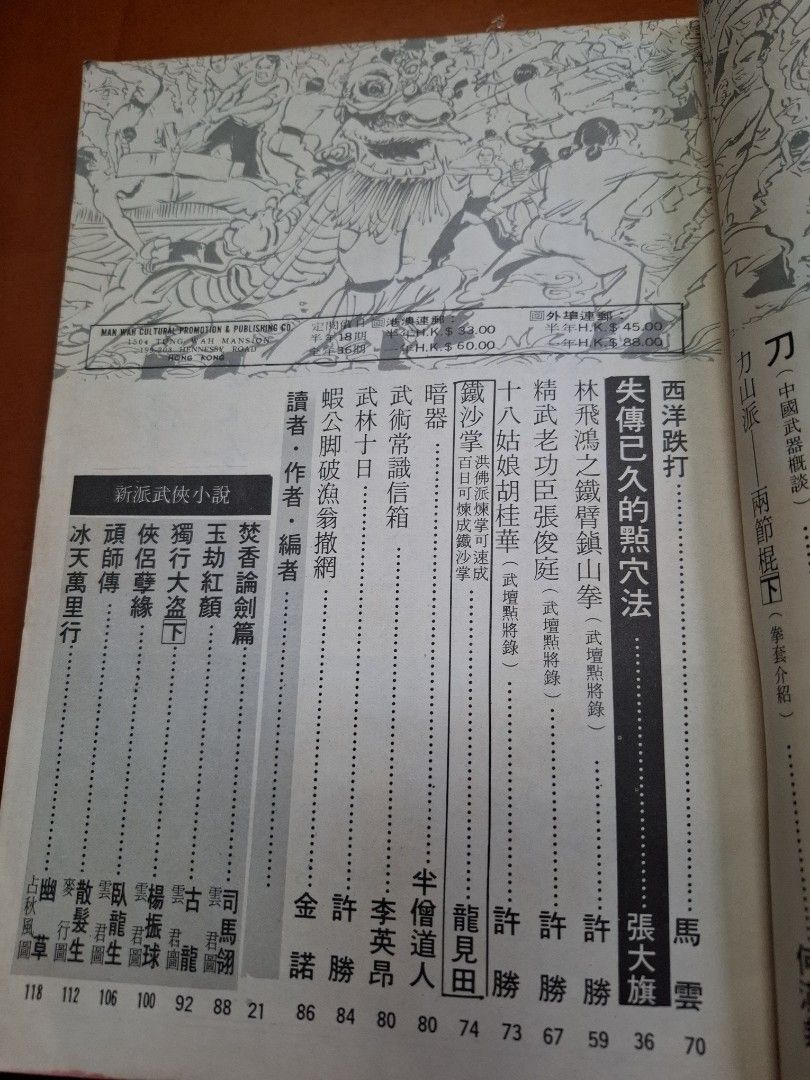 刀(中國武器概談)
力山派——兩節棍下(拳套介紹)
MAN WAH CULTURAL PROMOTION & PUBLISHING CO.
1504 TUNG WAH MANSION
199-203 HENNESSY ROAD
HONG KONG
定閱價目
半年18期
全年36期
圖港澳連郵:
半年H.K.$ 33.00
一年H.K.$ 60.00
圖外埠連郵:
半年H.K.$ 45.00
一年H.K.$ 88.00
西洋跌打 馬雲 70
失傳已久的點穴法 張大旗 36
林飛鴻之鐵臂鎮山拳(武壇點將錄) 許勝 59
精武老功臣張俊庭(武壇點將錄) 許勝 67
十八姑娘胡桂華(武壇點將錄) 許勝 73
鐵沙掌 洪佛派煉掌可速成 百日可煉成鐵沙掌 龍見田 74
暗器 半僧道人 80
武術常識信箱 李英昂 80
武林十日 許勝 84
蝦公脚破漁翁撤網 金諾 86
讀者·作者·編者 21
新派武俠小說
焚香論劍篇 司馬翎 雲君圖 88
玉劫紅顏 古龍 雲君圖 92
獨行大盗下 楊振球 雲君圖 100
俠侶孽緣 臥龍生 雲君圖 106
頑師傳 散髮生 麥行圖 112
冰天萬里行 幽草 占秋風圖 118